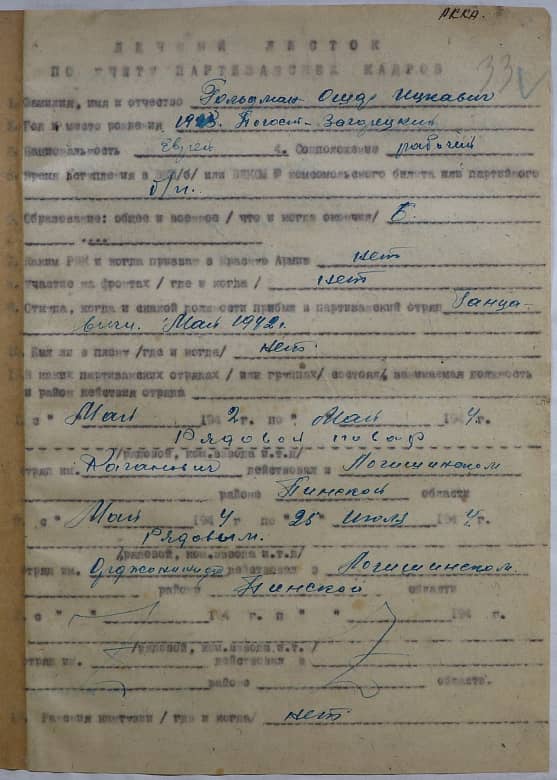 РККА.
33
ЛИЧНЫЙ ЛИСТОК
ПО УЧЕТУ ПАРТИЗАНСКИХ КАДРОВ
1. Фамилия, имя и отчество Гольдман Ошер Ицкович
2. Год и место рождения 1913. Погост-Загородский
3. Национальность Еврей 4. Соцположение рабочий
5. Время вступления в ВКП/б/ или ВЛКСМ № комсомольского билета или партийного
б/п.
6. Образование: общее и военное / что и когда окончил/ 6.
7. Каким РВК и когда призван в Красную Армию нет
8. Участие на фронтах / где и когда / нет
9. Откуда, когда и с какой должности прибыл в партизанский отряд Ганца-
вичи. Май 1942г.
10. Был ли в плену /где и когда/ нет.
11. В каких партизанских отрядах / или группах/ состоял, занимаемая должность
и район действия отряда
1. с " Май 194 2 г. по " Май 194 4 г.
Рядовой повар
/рядовой, ком.взвода и.т.д/
отряд им. Каганович действовал в Логишинском
районе Пинской области
2. с " Май 194 4 г по "25 июля 194 4 г.
Рядовым.
/рядовой, ком.взвода и.т.д/
отряд им. Орджоникидзе действовал в Логишинском
районе Пинской области
3. с " " 194 г. п " " 194 г.
/рядовой, ком.взвода и.т. /
отряд им. действовал в
районе область.
12. Ранения контузии / где и когда/ нет.